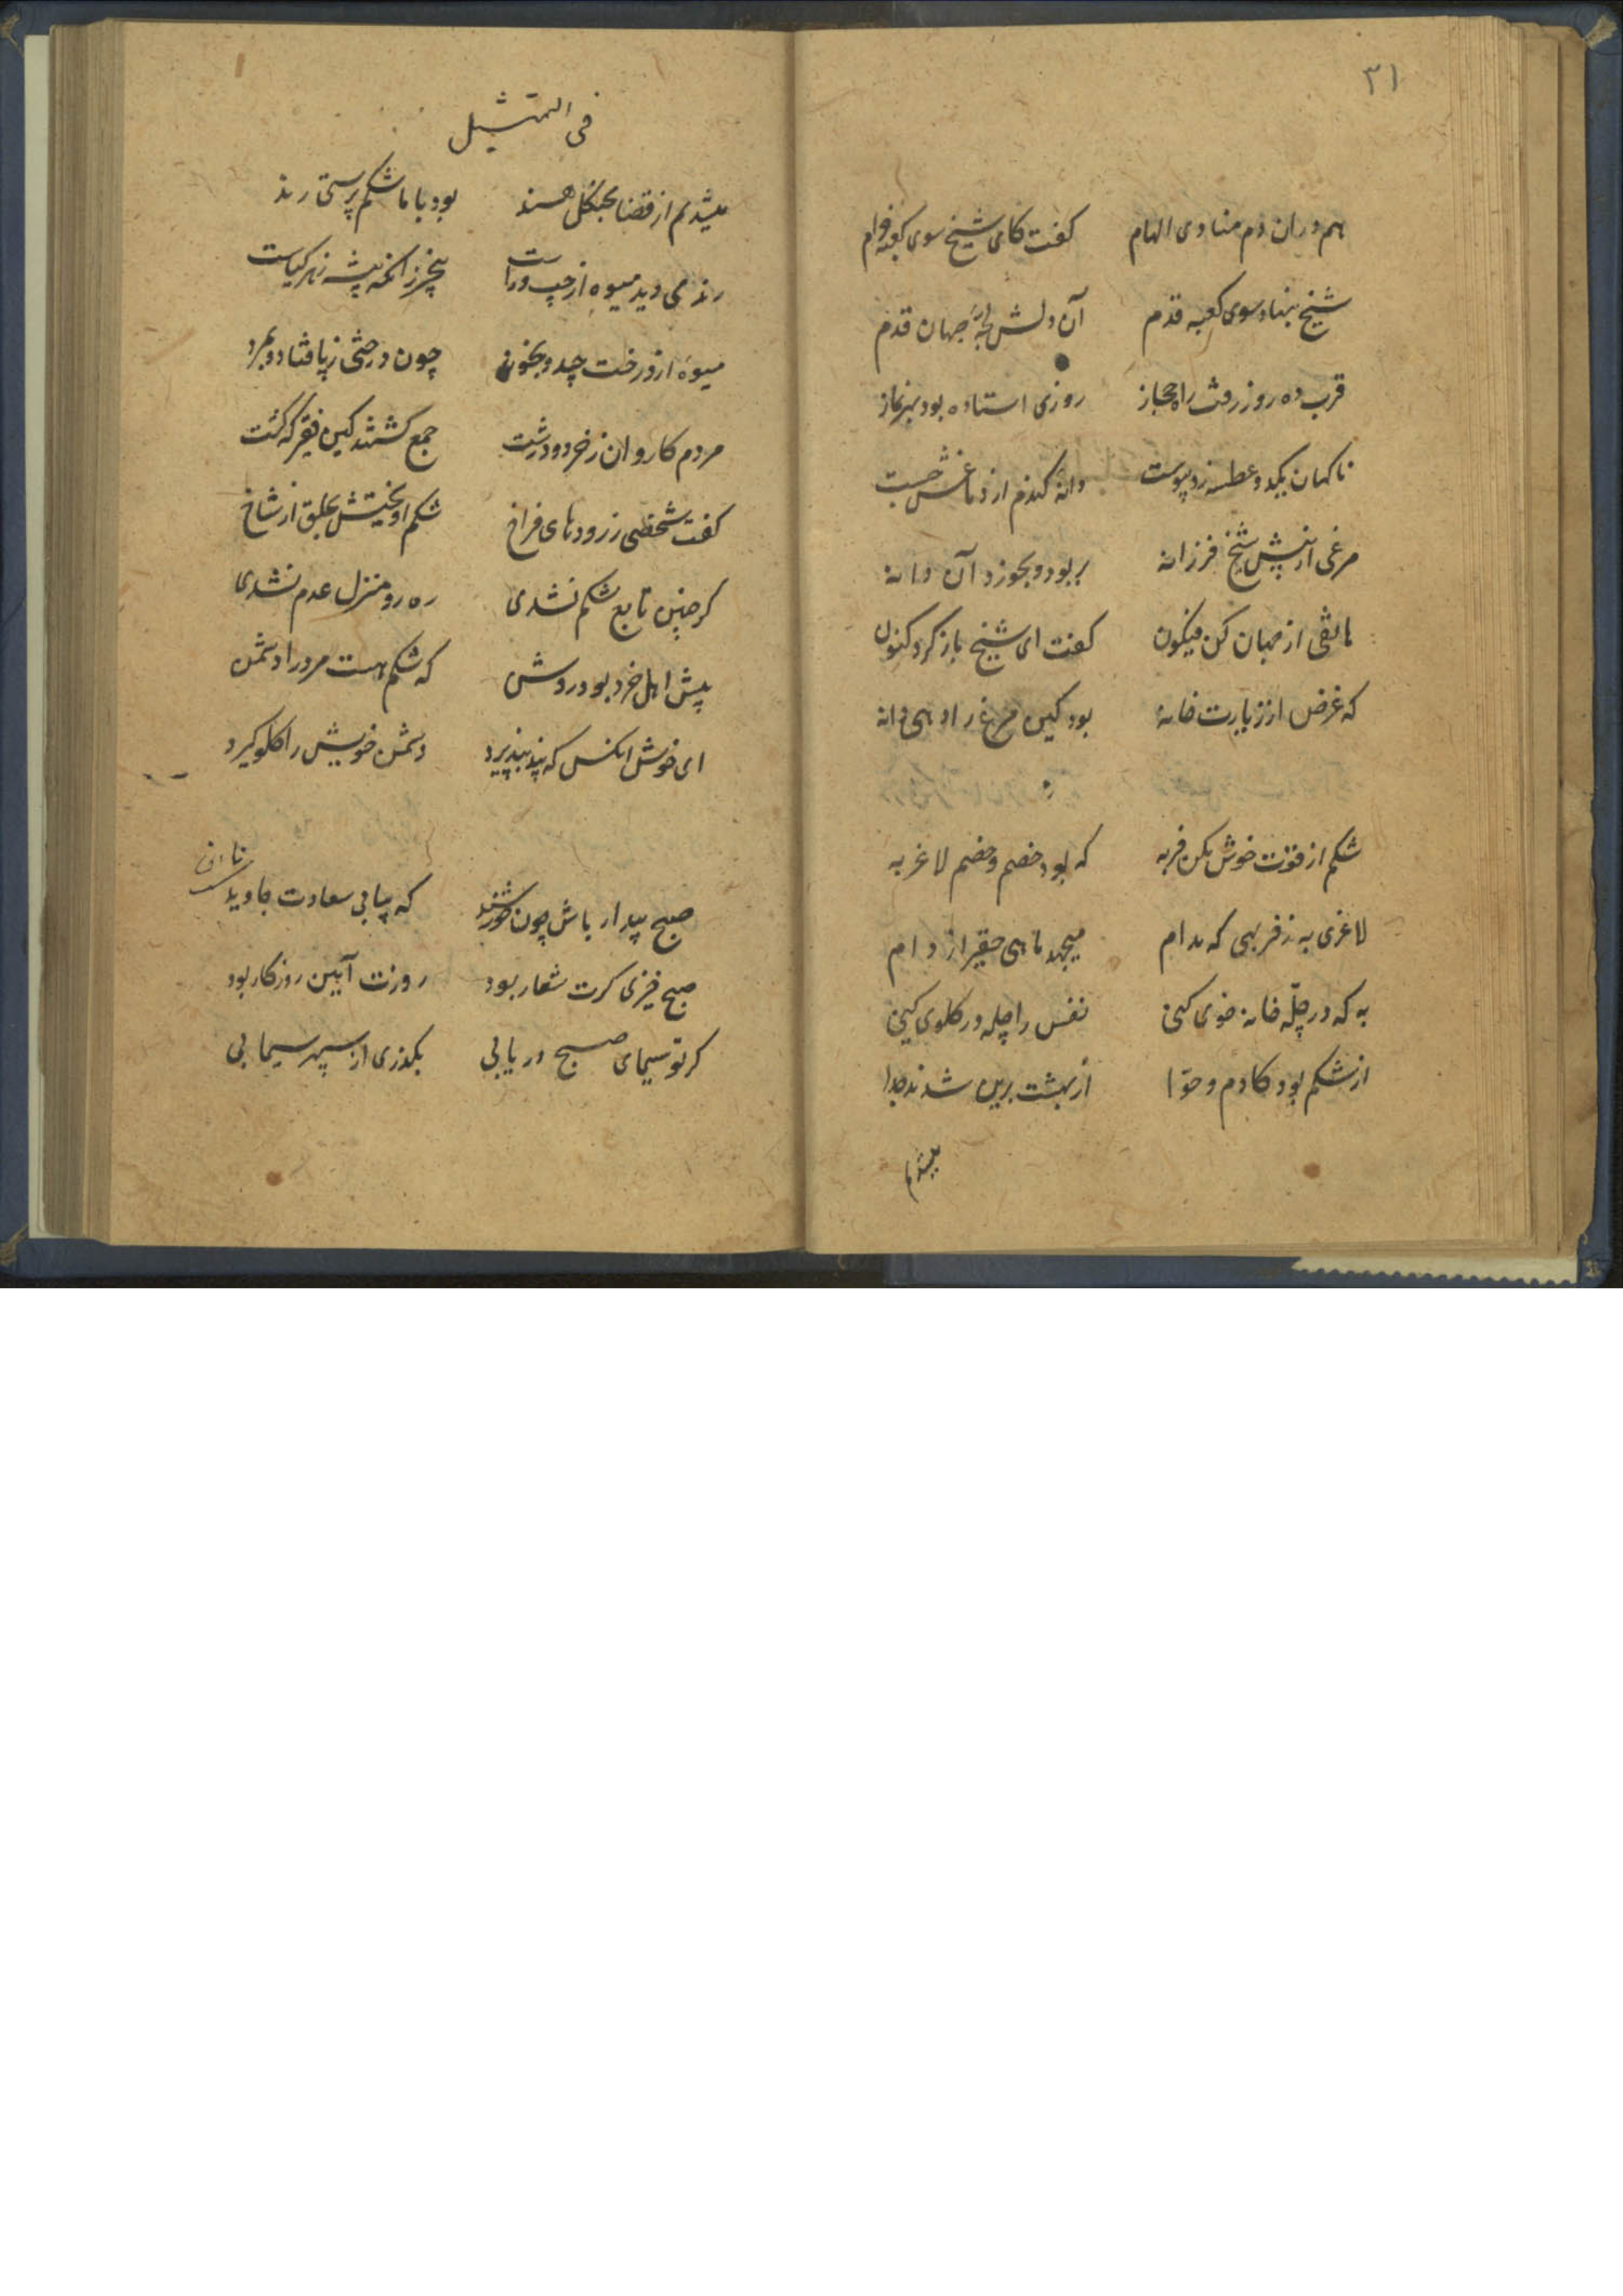 ۳۱
هم دران دم منادی الهام کفت کای شیخ سوی کعبه خرام
شیخ بنهاد سوی کعبه قدم آن دلش لجهٔ جهان قدم
قرب ده روز رفت راه حجاز روزی استاده بود بهر نماز
ناکهان یکدو عطسه زد پیوست دانه کندم از دماغش جست
مرغی از پیش شیخ فرزانه بربود و بخورد آن دانه
هاتفی از جهان کن فیکون کفت ای شیخ باز کرد کنون
که غرض از زیارت خانه بود کین مرغ را دهی دانه
شکم از قوت خوش مکن فربه که بود خصم و خصم لاغر به
لاغری به ز فربهی که مدام میجهد ماهی حقیر از دام
به که در چلّه خانه خوی کنی نفس را چله در کلوی کنی
از شکم بود کادم و حوّا از بهشت برین شدند جدا
میشدم
فی التمثیل
میشدم از قضا بجنکل هند بود با ما شکم پرستی رند
رند می دید میوه از چپ و راست بیخبر زانکه بیشه زهر کیاست
میوهٔ از درخت چید و بخورد چون درختی ز پا فتاد و بمرد
مردم کاروان ز خرد و درشت جمع کشتند کین فقیر که کشت
کفت شخصی ز رودهای فراخ شکم اویختش بحلق از شاخ
کر چنین تابع شکم نشدی ره رو منزل عدم نشدی
پیش اهل خرد بود روشن که شکم هست مرد را دشمن
ای خوش انکس که پند بپذیرد دشمن خویش را کلو کیرد
صبح بیدار باش چون خورشید که بیابی سعادت جاوید
صبح خیزی کرت شعار بود روزت آیین روزکار بود
کر تو سیمای صبح دریابی بکذری از سپهر سیمابی